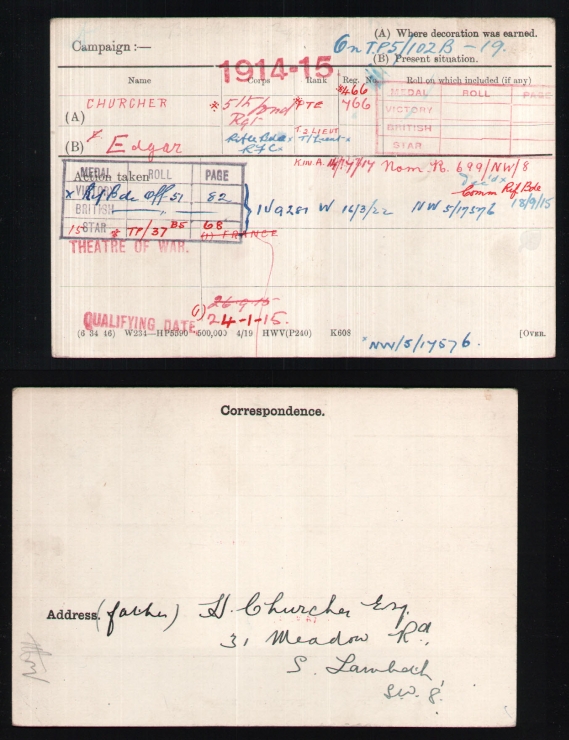 Campaign :—
1914-15
On T.P.5/102B - 19.
(A) Where decoration was earned.
(B) Present situation.
Name Corps Rank Reg. No. Roll on which included (if any)
MEDAL ROLL PAGE
VICTORY
BRITISH
STAR
(A) CHURCHER * 5th/Lond Rgt * PTE 466 766
(B) Edgar Rifle Bde x T/Lieut x
R.F.C.
T 2 LIEUT
K.in A. 14/7/17 Nom. R. 699/NW/8
Dec'd x
Comm Rif Bde
18/9/15
Action taken
MEDAL ROLL PAGE
VICTORY x Rif Bde Off 51 82
BRITISH
15 STAR * TP/37 B5 68
W 16/3/22 NW 5/17576
THEATRE OF WAR. (1) FRANCE
26-9-15
QUALIFYING DATE (1) 24-1-15.
(6 34 46) W234—HP5590 500,000 4/19 HWV(P240) K608 [OVER.
NW/5/17576.
Correspondence.
Address. (father) H. Churcher Esq.
31 Meadow Rd,
S. Lambeth,
S.W. 8.